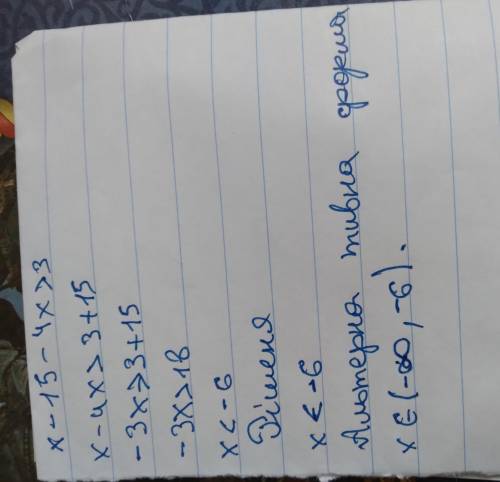 x - 15 - 4x > 3
x - 4x > 3 + 15
- 3x > 3 + 15
- 3x > 18
x < - 6
Рішеня
x < -6
Альтерна тивна форма
x ∈ (-∞, -6).